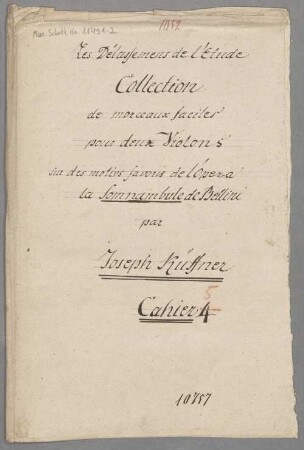 Mus. Schott Ha 11491-2
Les Délassemens de l'Etude
Collection
de morceaux faciles
pour deux Violons
sur des motifs favoris de l'Opera
la Somnambule de Bellini
par
Joseph Küffner
5
Cahier 4
10757